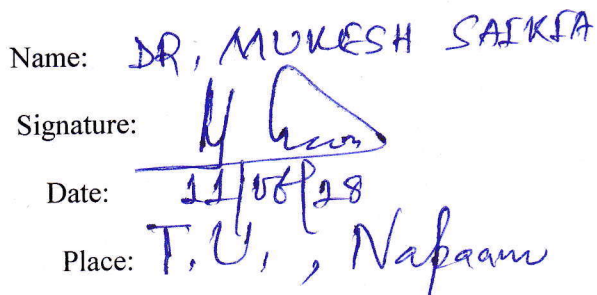 Name: DR, MUKESH SAIKIA
Signature:
Date: 11/06/28
Place: T.U, , Napaam